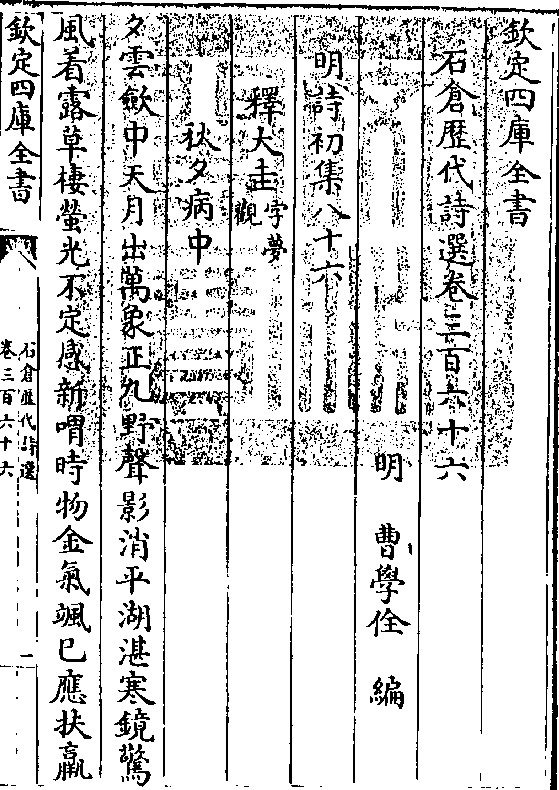 欽定四庫全書
石倉歴代詩選卷三百六十六
明 曹學佺 編
明詩初集八十六
釋大圭字夢觀
秋夕病中
夕雲歛中天月出萬象正九野聲影消平湖湛寒鏡驚
風着露草棲螢光不定感新喟時物金氣颯已應扶羸
欽定四庫全書
石倉歴代詩選
卷三百六十六
一